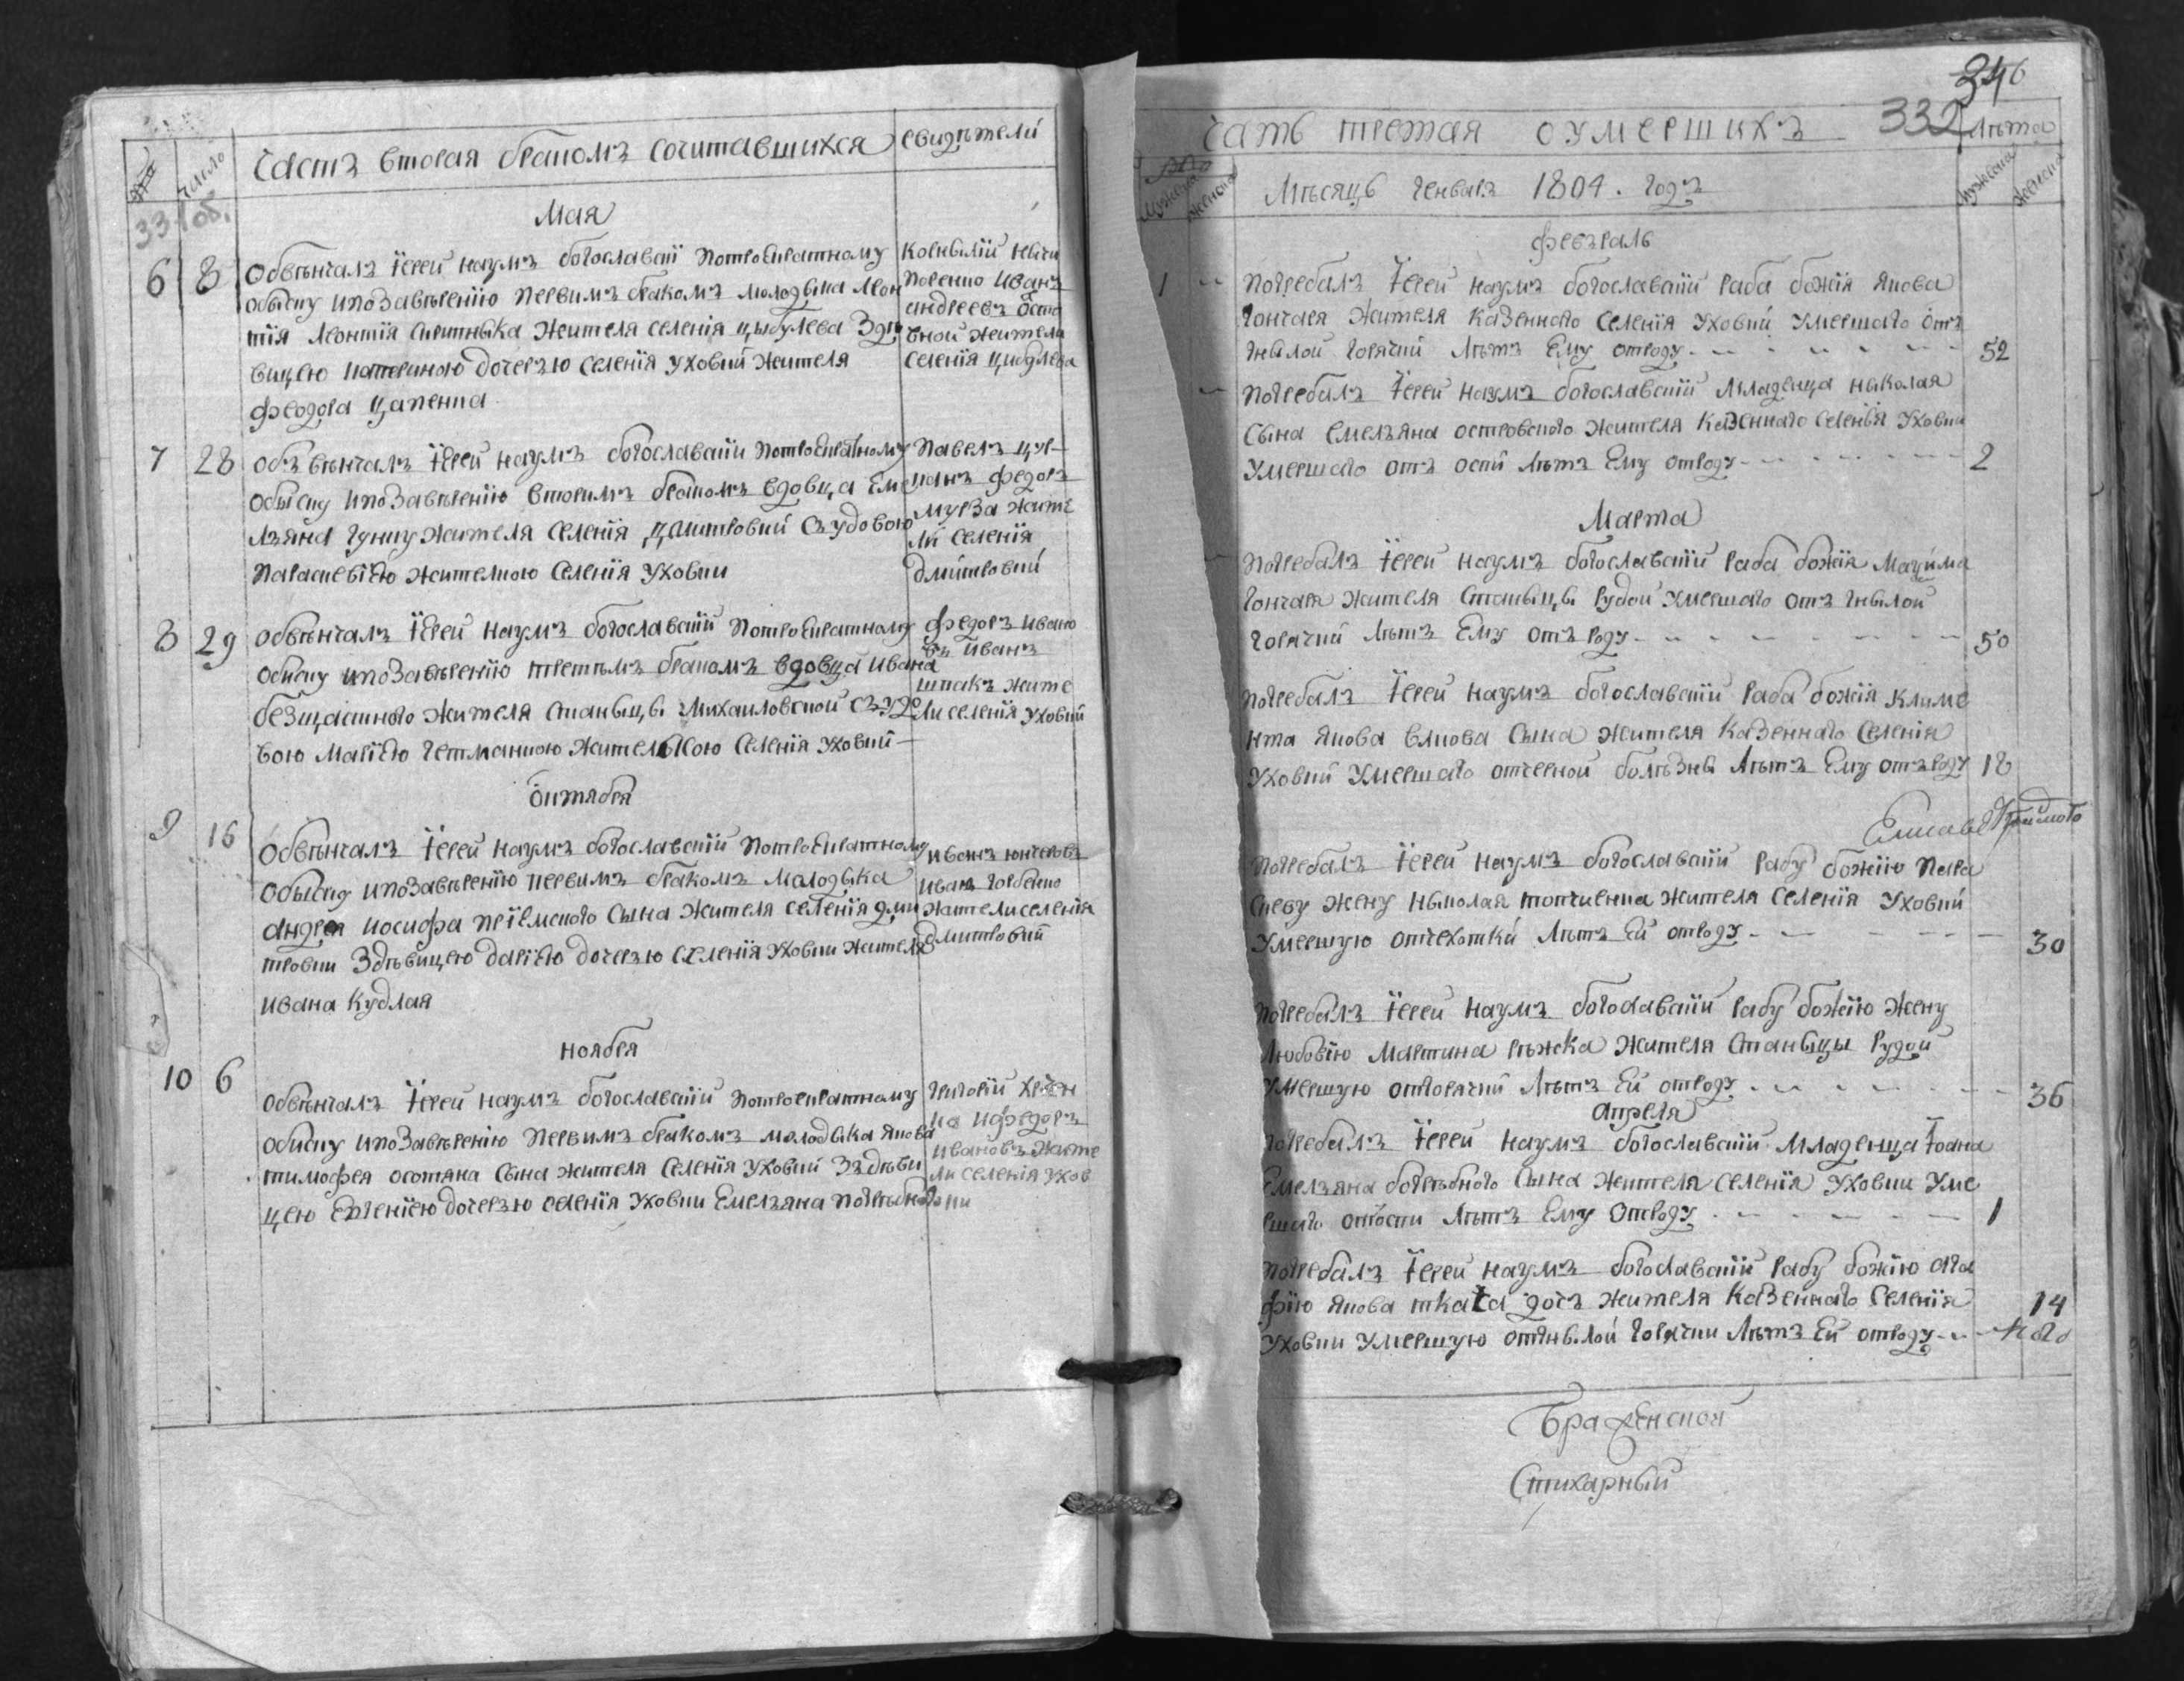 Частъ вторая бракомъ сочитавшихся
свидѣтелй
число
Мая
6 8 Обвѣнчалъ Їерей наумъ богославскїй потроекратному
обыску изпозавѣренїю первимъ бракомъ молодыка леон
тїя леонтїя жителя селенїя цыбулева здѣ
вицею катериною дочерзю селенїя уховки жителя
феодора цапенка
Корнылїй
Иванъ
андреевъ
жители
селенїя цибулева
7 28 Обѣвѣнчалъ Їерей наумъ богославскїи потроекратному
обыску ипозавѣренїю вторимъ бракомъ вдовца Еме
лзяна гунку жителя селенїя дмитровкй съудовою
параскевїею жителкою селенїя уховки
Павелъ цу
канъ федоръ
мурза жите
лй селенїя
дмитровкй
8 29 обвѣнчалъ Їерей наумъ богославскїй потроекратному
обиску ипозавѣренїю третѣмъ бракомъ вдовца ивана
безщастного жителя станыцѣ михаиловской съудо
вою марїею гетманкою жителкою селенїя уховкй
федоръ ивано
въ иванъ
шпакъ жите
ли селенїя уховкй
октября
9 16 Обвѣнчалъ Їерей наумъ богославскїй потроекратному
обыску ипозавѣренїю первимъ бракомъ молодыка
андрея иосифа прїемского сына жителя селенїя дми
тровки здѣвицею дарїею дочерзю селенїя уховки жителя
ивана кудлая
иванъ
иванъ горбенко
жители селенїя
дмитровкй
ноября
10 6 обвѣнчалъ Їерей наумъ богославскїи потроекратному
обиску ипозавѣренїю первимъ бракомъ молодыка якова
тимофея осотяна сына жителя селенїя уховкй здѣви
цею евгенїею дочерзю селенїя уховки Емелзяна погребного
григорїй
ифедоръ
ивановъ жите
ли селенїя ухов
ки
346
332
Чать третая оумершихъ
лѣта
Мѣсяцъ генваръ 1804. годъ
февраль
1 погребалъ Їерей наумъ богославскїй раба божїя якова
гончаря жителя казенного селенїя уховкй умершаго отъ
гнылой горячкй лѣтъ Ему отроду 52
погребалъ Їерей наумъ богославскїй младенца николая
сына емелзяна островского жителя казенного селенїя уховки
умершаго отъ оспй лѣтъ Ему отроду 2
Марта
погребалъ Їерей наумъ богославскїй раба божїя мацима
гончаря жителя станыцѣ рудой умершаго отъ гнылой
горячкй лѣтъ Ему отъ роду 50
погребалъ Їерей наумъ богославскїй раба божїя климе
нта якова сына жителя казенного селенїя
уховкй умершаго отчерной болѣзнѣ лѣтъ Ему отъ роду 18
погребалъ Їерей наумъ богославскїй рабу божїю пара
скеву жену николая топчиенка жителя селенїя уховкй
умершую отчехоткй лѣтъ Ей отроду 30
погребалъ Їерей наумъ богославскїй рабу божїю жену
любовїю мартина рѣжска жителя станыцы рудой
умершую отгорячкй лѣтъ Ей отроду 36
апреля
погребалъ Їерей наумъ богославскїй младенца їоана
Емелзяна погребного сына жителя селенїя уховки уме
ршаго отоспи лѣтъ Ему отроду 1
погребалъ Їерей наумъ богославскїй рабу божїю ага
фїю якова ткача дочъ жителя казенного селенїя
уховки умершую отгнылой горячки лѣтъ Ей отроду 14
Стихарный